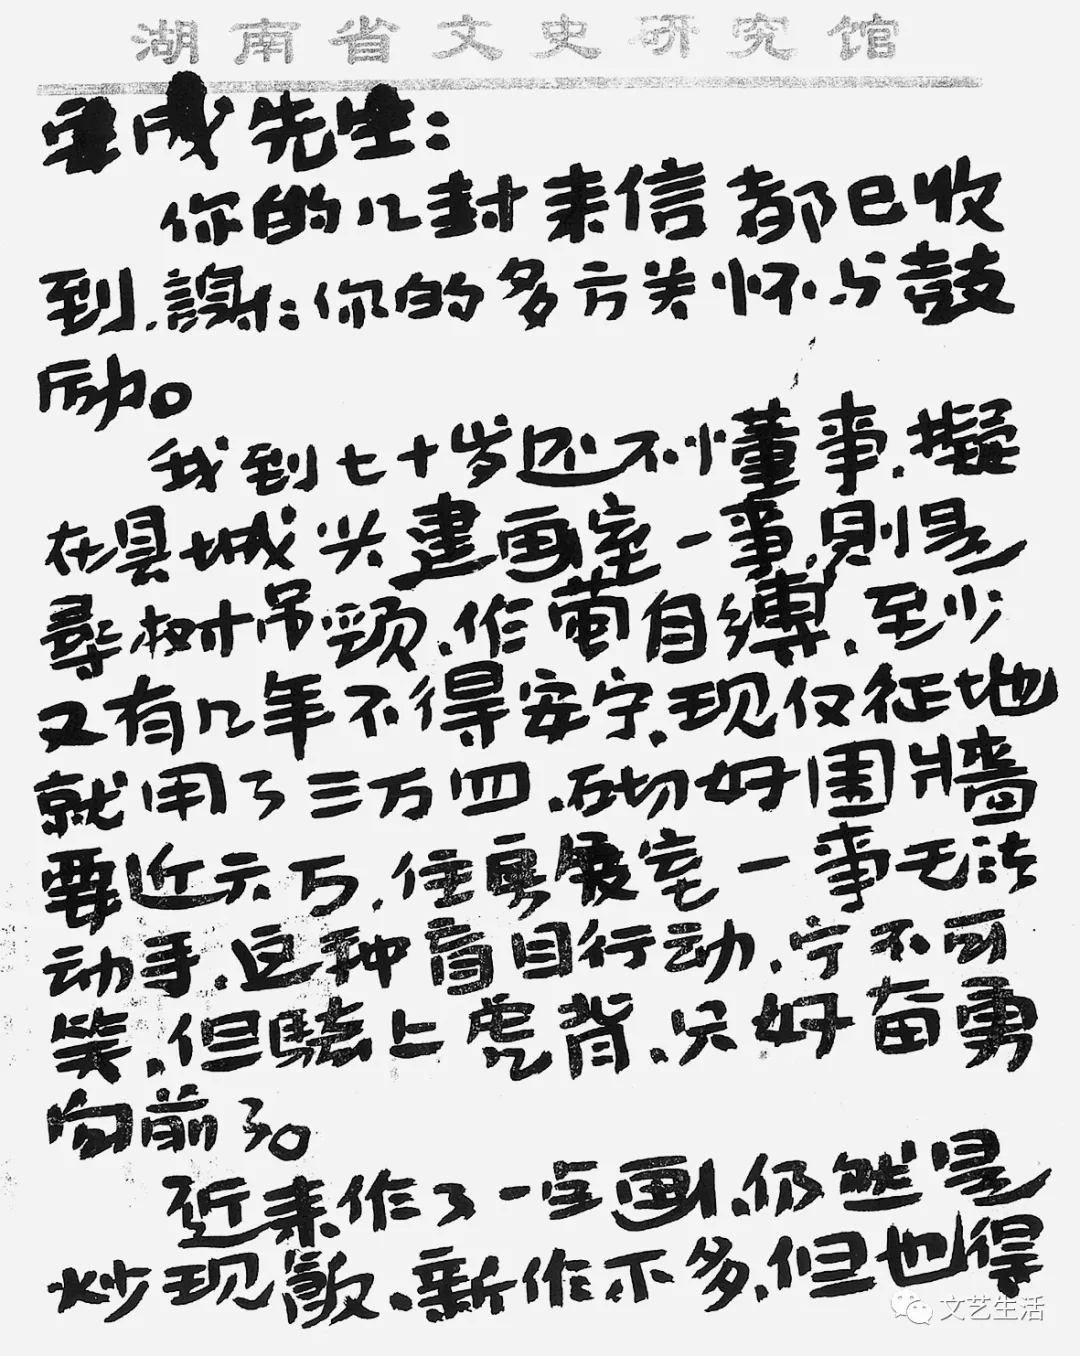 湖南省文史研究馆
宝成先生：
你的几封来信都已收
到.謝:你的多方关怀与鼓
励。
我到七十岁还不懂董事.擬
在县城兴建画室一事,則是
尋树吊颈.作茧自缚.至少
又有几年不得安宁.现仅征地
就用了三万四.砌好围牆
要近六万.住房展室一事无法
动手.这种盲目行动.宁不可
笑.但騎上虎背.只好奋勇
向前了。
近来作了一些画.仍然是
炒现飯.新作不多.但也得
文艺生活